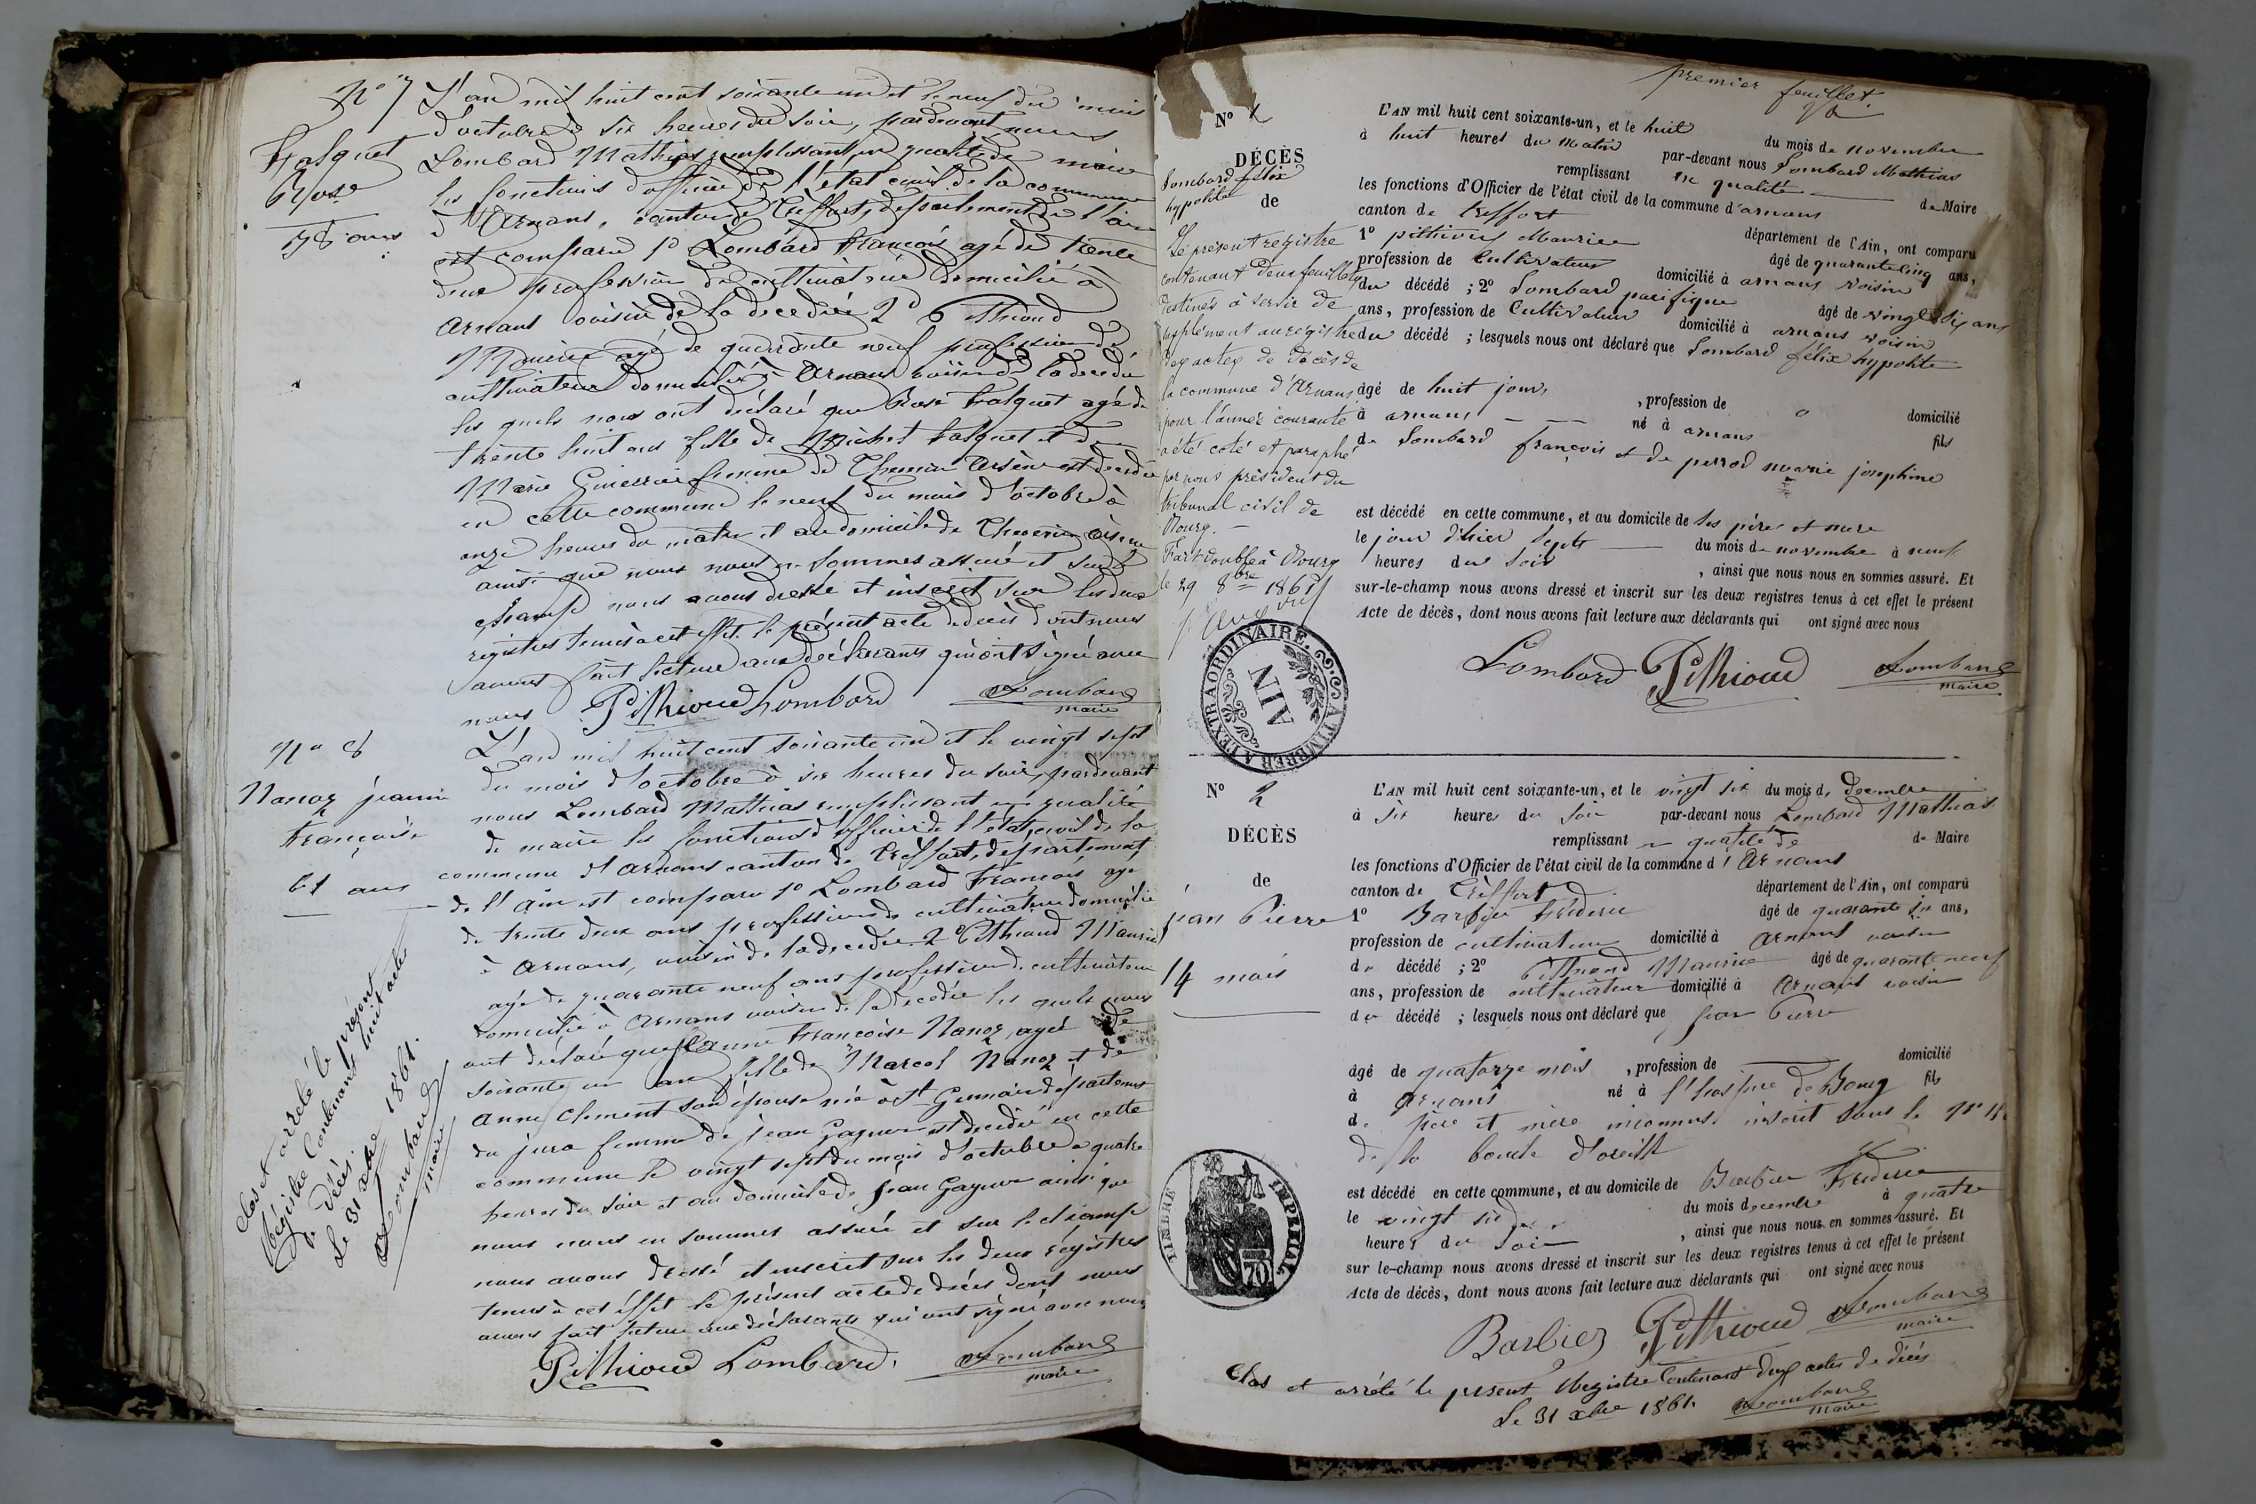 N° 7
Falquet
Rose
38 ans
L'an mil huit cent soixante un et le neuf du mois
d'octobre à six heures du soir, pardevant nous
Lombard Mathias remplissant en qualité de maire
les fonctions d'officier de l'état civil de la commune
d'Arnans, canton de Treffort, département de l'ain
ont comparu 1° Lombard François agé de trente
deux profession de cultivateur domicilié à
Arnans voisin de la decedée 2° Pithioud
Maurice agé de quarante neuf profession de
cultivateur domicilié à Arnans voisin de la decedée
les quels nous ont déclaré que Rose Falquet agé de
trente huit ans fille de Michel Falquet et de
Marie femme de Arsène est decedée
en cette commune le neuf du mois d'octobre à
onze heures du matin et au domicile de
ainsi que nous nous en sommes assuré et sur le
champ nous avons dressé et inscrit sur les deux
registres tenus à cet effet le présent acte de décès dont nous
avons fait lecture aux déclarants qui ont signé avec
nous Pithioud Lombard Lombard
maire
N° 8
Nanoz jeanne
françoise
61 ans
L'an mil huit cent soixante un et le vingt sept
du mois d'octobre à six heures du soir, pardevant
nous Lombard Mathias remplissant en qualité
de maire les fonctions d'officier de l'état civil de la
commune d'Arnans canton de Treffort, département
de l'ain est comparu 1° Lombard François agé
de trente deux ans profession de cultivateur domicilié
à Arnans, voisin de la decedée 2° Pithioud Maurice
agé de quarante neuf ans profession de cultivateur
domicilié à Arnans voisin de la décédée les quels nous
ont déclaré que jeanne Françoise Nanoz, agée de
soixante un an fille de Marcel Nanoz et de
Anne Clement son épouse née à St Germain département
du jura femme de jean est decedée en cette
commune le vingt sept du mois d'octobre a quatre
heures du soir et au domicile de jean ainsi que
nous nous en sommes assuré et sur le champ
nous avons dressé et inscrit sur les deux régistres
tenus à cet éffet le présent acte de décès dont nous
avons fait lecture aux déclarants qui ont signé avec nous
Pithioud Lombard Lombard
maire
Clos et arrêté le présent
Régistre Contenant huit actes
de décès.
Le 31 xbre 1861.
Lombard
maire
premier feuillet.
N° 1
DÉCÈS
Lombard félix
hypolite
de
Le présent registre
contenant deux feuillets
destinés à servir de
supplément au registre
des actes de décès de
la commune d'Arnans
pour l'année courante
a été coté et paraphé
par nous président du
tribunal civil de
Bourg.
Fait double à Bourg
le 29 8bre 1861
L'AN mil huit cent soixante-un, et le huit du mois de novembre
à huit heures du matin par-devant nous Lombard Mathias
remplissant en qualité de Maire
les fonctions d'Officier de l'état civil de la commune d'arnans
canton de treffort département de l'Ain, ont comparu
1° pithioud Maurice âgé de quarante cinq ans,
profession de Cultivateur domicilié à arnans voisin
du décédé ; 2° Lombard pacifique âgé de vingt six ans
ans, profession de Cultivateur domicilié à arnans voisin
du décédé ; lesquels nous ont déclaré que Lombard félix hypolite
âgé de huit jours , profession de o domicilié
à arnans né à arnans fils
de Lombard françois et de perrod marie josephine
est décédé en cette commune, et au domicile de ses père et mere
le jour d'hier sept du mois de novembre à neuf
heures du soir , ainsi que nous nous en sommes assuré. Et
sur-le-champ nous avons dressé et inscrit sur les deux registres tenus à cet effet le présent
Acte de décès, dont nous avons fait lecture aux déclarants qui ont signé avec nous
Lombard Pithioud Lombard
maire
A L'EXTRAORDINAIRE. A TIMBRER
AIN
N° 2
DÉCÈS
de
jean Pierre
14 mois
L'AN mil huit cent soixante-un, et le vingt six du mois de decembre
à six heures du soir par-devant nous Lombard Mathias
remplissant en qualité de de Maire
les fonctions d'Officier de l'état civil de la commune d'Arnans
canton de Treffort département de l'Ain, ont comparu
1° Barbier fréderic âgé de quarante six ans,
profession de cultivateur domicilié à Arnans voisin
du décédé ; 2° Pithioud Maurice âgé de quarante neuf
ans, profession de cultivateur domicilié à Arnans voisin
du décédé ; lesquels nous ont déclaré que jean Pierre
âgé de quatorze mois , profession de domicilié
à Arnans né à l'hospice de Bourg fils
de père et mère inconnus inscrit sous le N°
de la boucle d'oreille
est décédé en cette commune, et au domicile de Barbier Fréderic
le vingt six du mois decembre à quatre
heures du soir , ainsi que nous nous en sommes assuré. Et
sur le-champ nous avons dressé et inscrit sur les deux registres tenus à cet effet le présent
Acte de décès, dont nous avons fait lecture aux déclarants qui ont signé avec nous
Barbier Pithioud Lombard
maire
TIMBRE IMPÉRIAL
70
Clos et arrêté le présent Régistre Contenant deux actes de décés
Le 31 xbre 1861. Lombard
maire